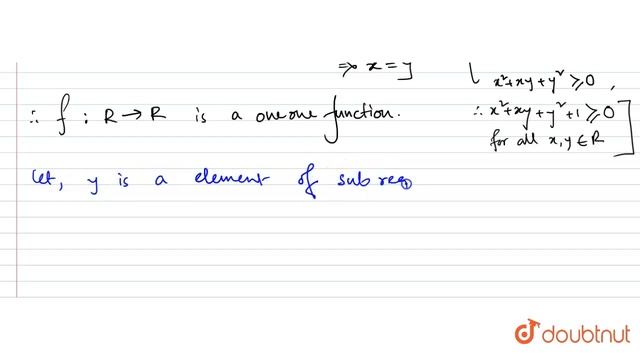 ⇒ x = y
x²+xy+y² ⩾ 0 ,
∴ f : R → R is a one one function.
∴ x²+xy+y²+1 ⩾ 0
for all x, y ∈ R
Let, y is a element of sub reg
doubtnut